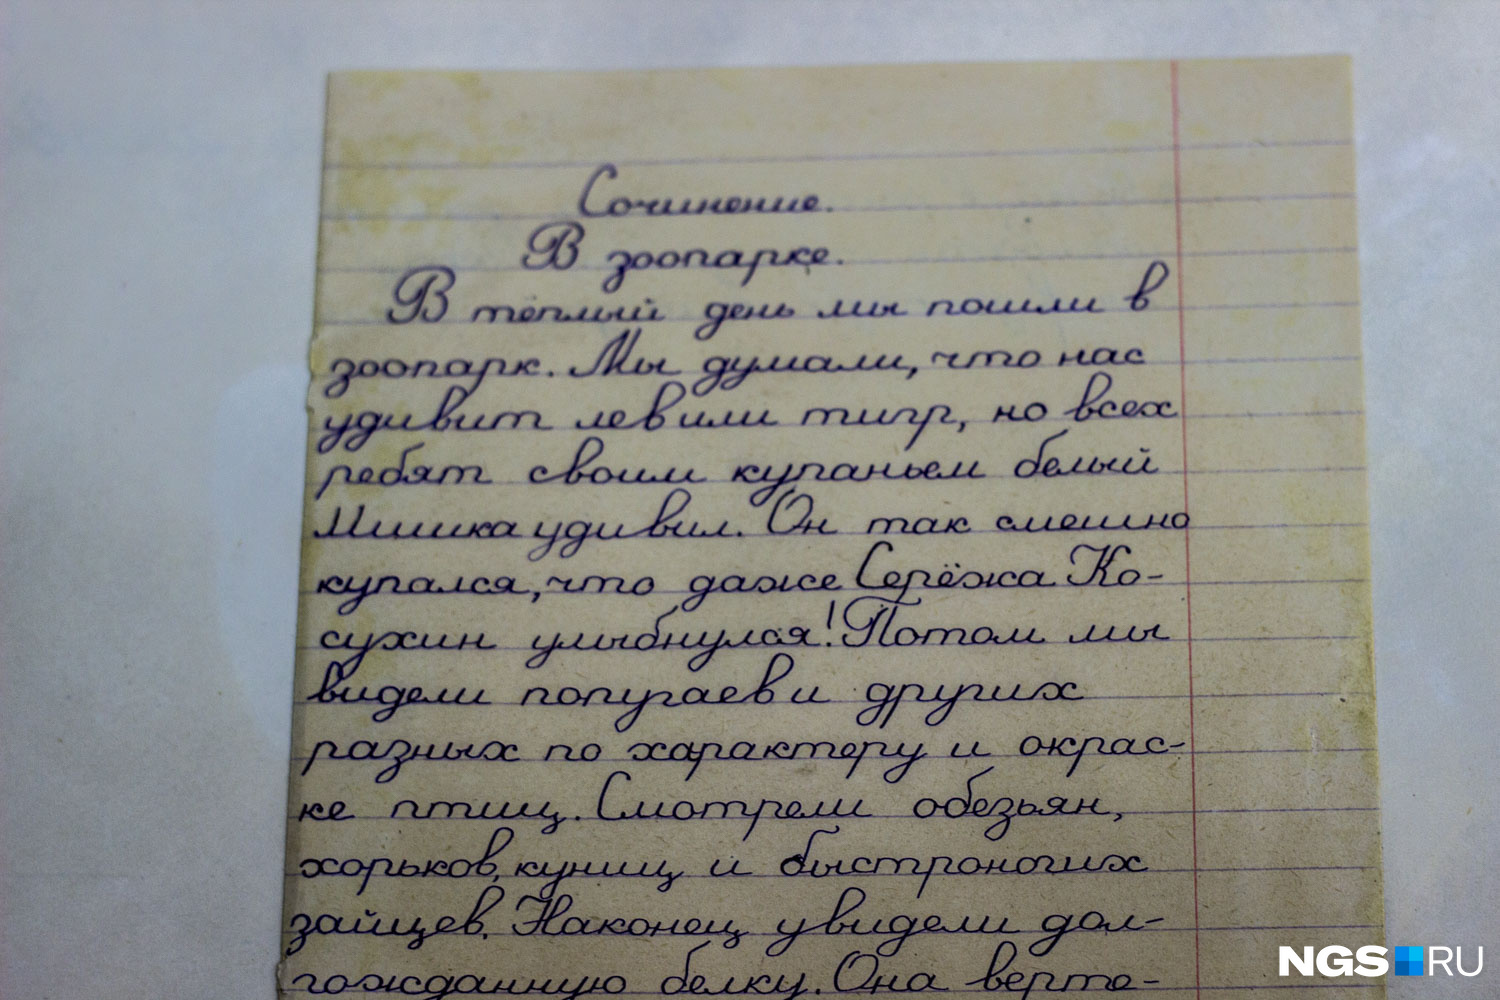 Сочинение.
В зоопарке.
В тёплый день мы пошли в
зоопарк. Мы думали, что нас
удивит лев или тигр, но всех
ребят своим купаньем белый
Мишка удивил. Он так смешно
купался, что даже Серёжа Ко-
сухин улыбнулся! Потом мы
видели попугаев и других
разных по характеру и окрас-
ке птиц. Смотрели обезьян,
хорьков, куниц и быстроногих
зайцев. Наконец увидели дол-
гожданную белку. Она верте-
NGS RU